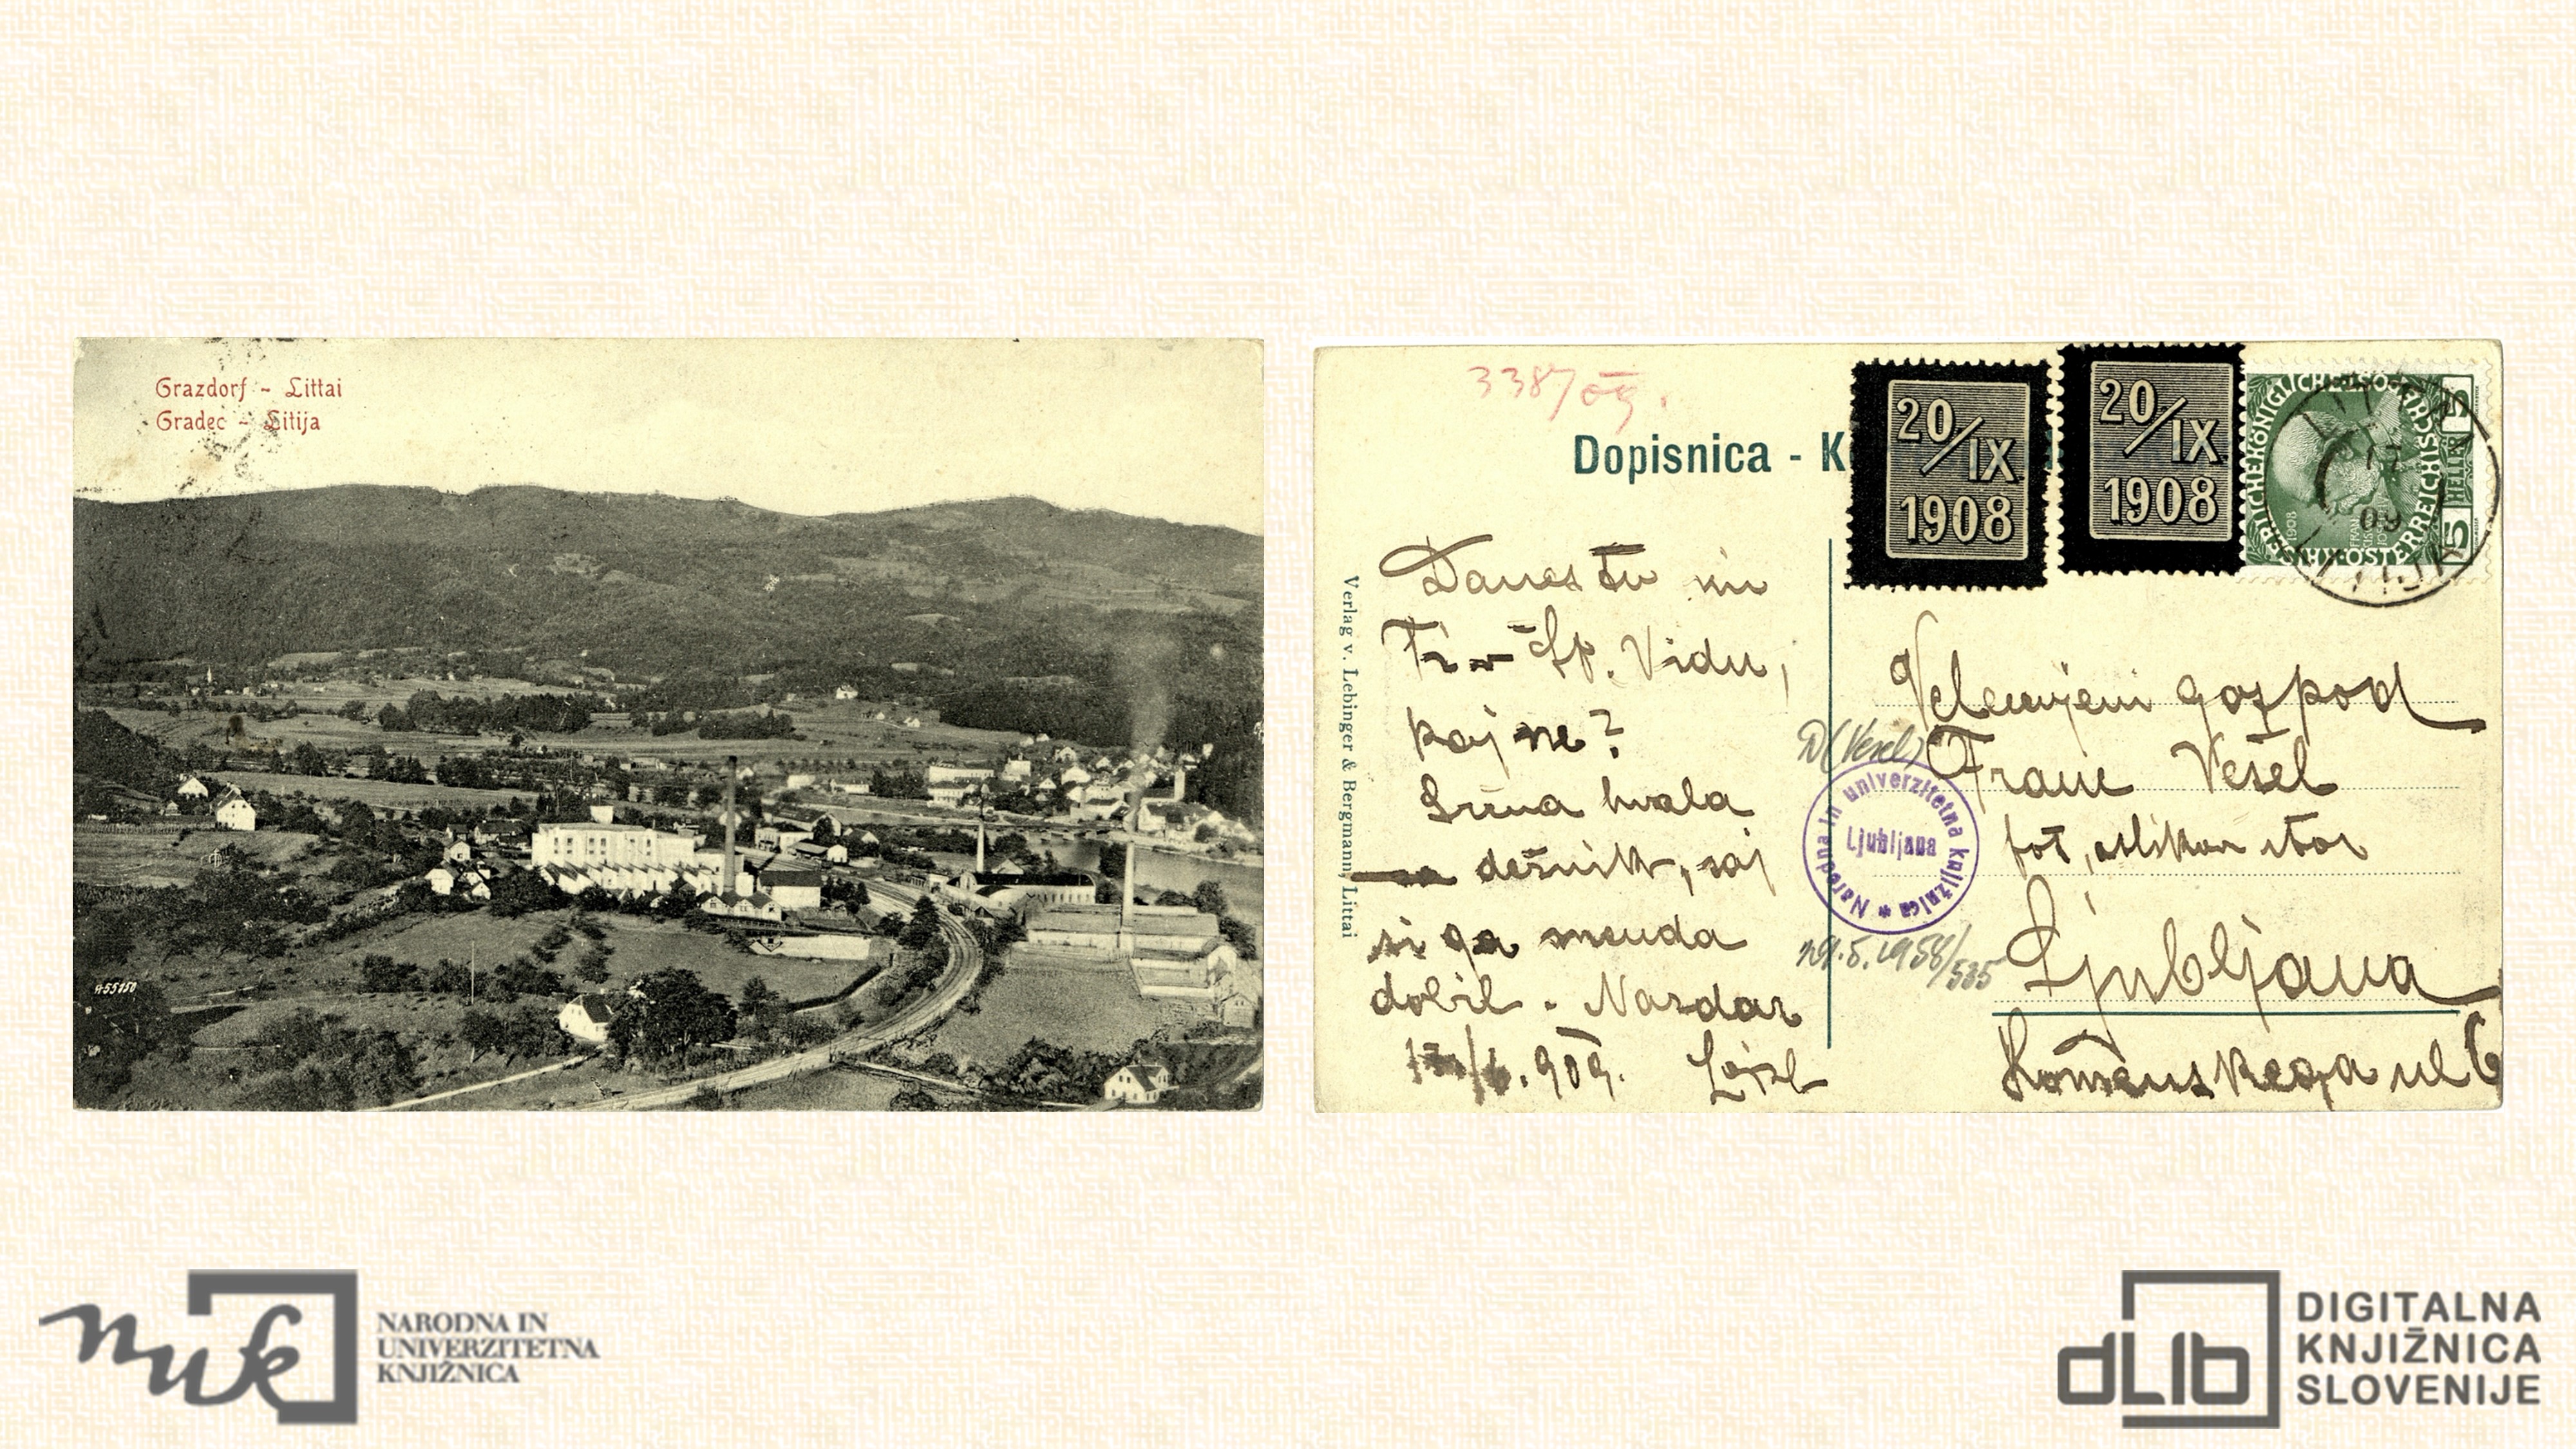 Grazdorf - Littai
Gradec - Litija
A 55150
3387/09.
Dopisnica - K
20/IX
1908
20/IX
1908
KAISERLICHE KÖNIGLICHE ÖSTERREICHISCHE
5 HELLER 5
1908
09
Verlag v. Lebinger & Bergmann, Littai
Danes tu in
Fr v Šp. Vidu,
kaj ne?
Srčna hvala
za dežnik, saj
si ga menda
dobil. Nazdar
/6. 909. Lojze
Velecenjeni gospod
Franc Vesel
fot. in slikar
Ljubljana
Komenskega ul 6
D (Vesel)
Narodna in univerzitetna knjižnica
Ljubljana
5. 1958/535
nuk
NARODNA IN
UNIVERZITETNA
KNJIŽNICA
dLib
DIGITALNA
KNJIŽNICA
SLOVENIJE